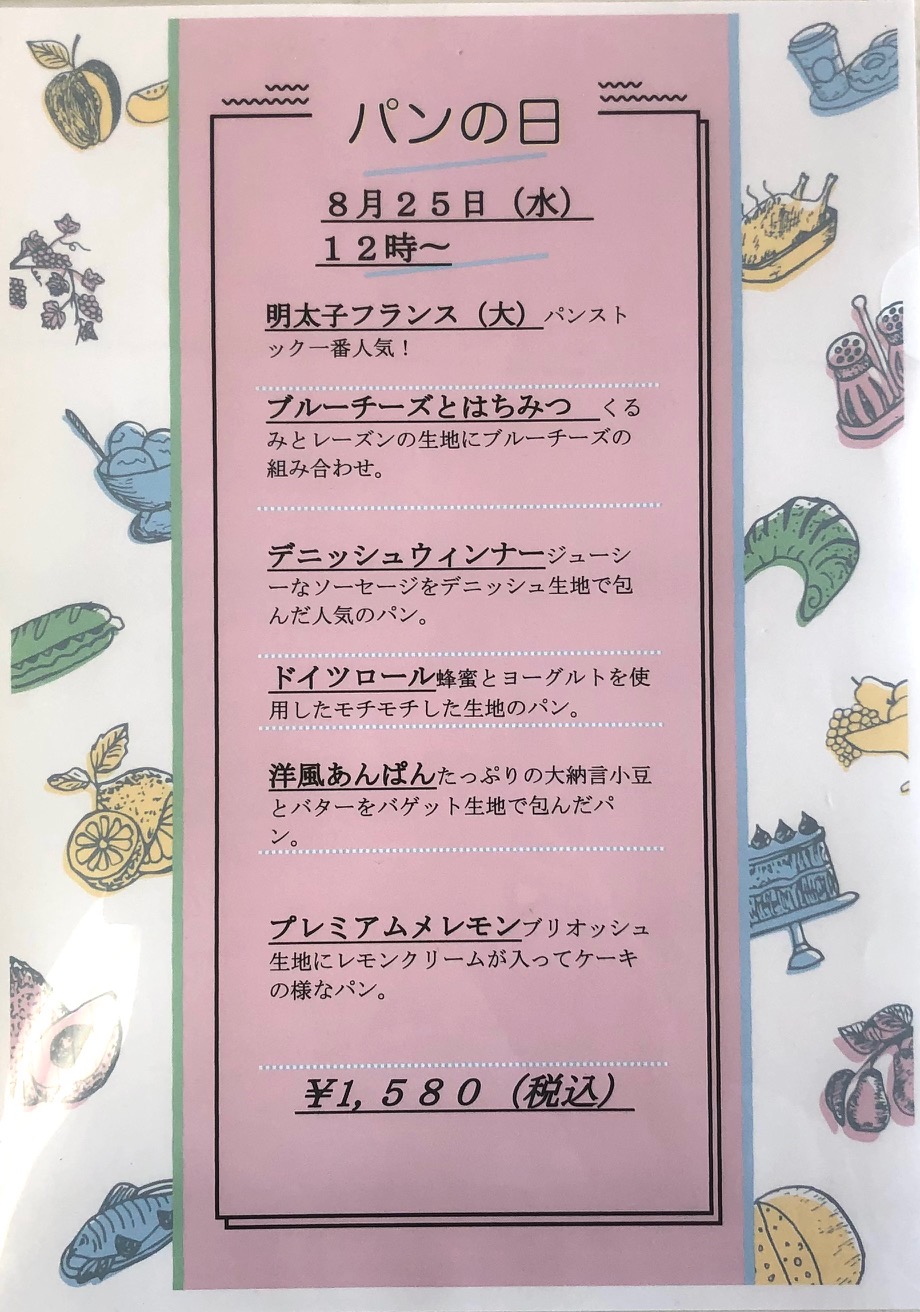 パンの日
８月２５日（水）
１２時～
明太子フランス（大）パンスト
ック一番人気！
ブルーチーズとはちみつ　くる
みとレーズンの生地にブルーチーズの
組み合わせ。
デニッシュウィンナージューシ
ーなソーセージをデニッシュ生地で包
んだ人気のパン。
ドイツロール蜂蜜とヨーグルトを使
用したモチモチした生地のパン。
洋風あんぱんたっぷりの大納言小豆
とバターをバゲット生地で包んだパ
ン。
プレミアムメレモンブリオッシュ
生地にレモンクリームが入ってケーキ
の様なパン。
¥1,５８０（税込）